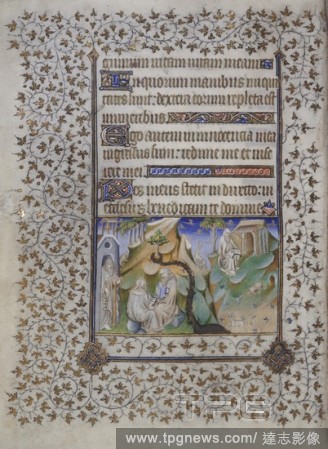 In quorum manibus iniqui
tates sunt: dextera eorum repleta est
muneribus
Ego autem in innocentia mea
sum: redime me et mise
mei
Pes meus stetit in directo: in
ecclesiis benedicam te domine
TPG
www.tpgnews.com/ 達志影像